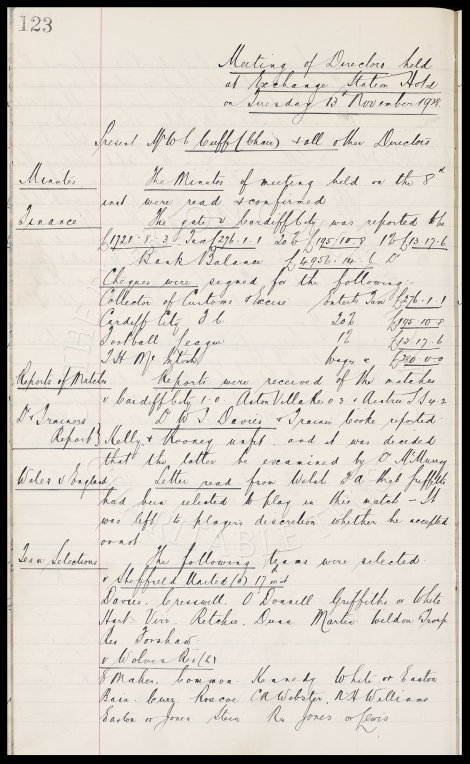 123
Meeting of Directors held
at Exchange Station Hotel
on Tuesday 13th November 1928
Present Mr W C Cuff (Chair) & all other Directors
Minutes The Minutes of meeting held on the 8th
inst were read & confirmed
Finance The gate v Cardiff City was reported to be
£1721-8-3 Tax £276-1-1 20% £195-10-8 1% £13-17-6
Bank Balance £4956-14-6 Dr
Cheques were signed for the following:-
Collector of Customs & Excise Entertn Tax £276-1-1
Cardiff City F C 20% £195-10-8
Football League 1% £13-17-6
T. H. McIntosh wages £
Reports of Matches Reports were received of the matches
v Cardiff City 1-0. Aston Villa Res 0-3 & 4-2
Dr & Trainers Dr W. J. Davies & Trainer Cooke reported
Report} Kelly, & Rooney unfit, and it was decided
that the latter be examined by Dr McMurray
Wales v England Letter read from Welsh F.A. that Griffiths
had been selected to play in this match - It
was left to players discretion whether he accepted
or not.
Team Selections The following teams were selected
v Sheffield United (a) 17th inst
Davies. Cresswell. O'Donnell. Griffiths or White
Hart. Virr. Ritchie. Dunn Martin Weldon Troup
Res Forshaw.
v Wolves Res (a)
E Maher. Common. Kennedy White or Easton
Bain. Curr. Roscoe. C R Webster. R. H Williams
Easton or Jones. Stein Res Jones or Lewis